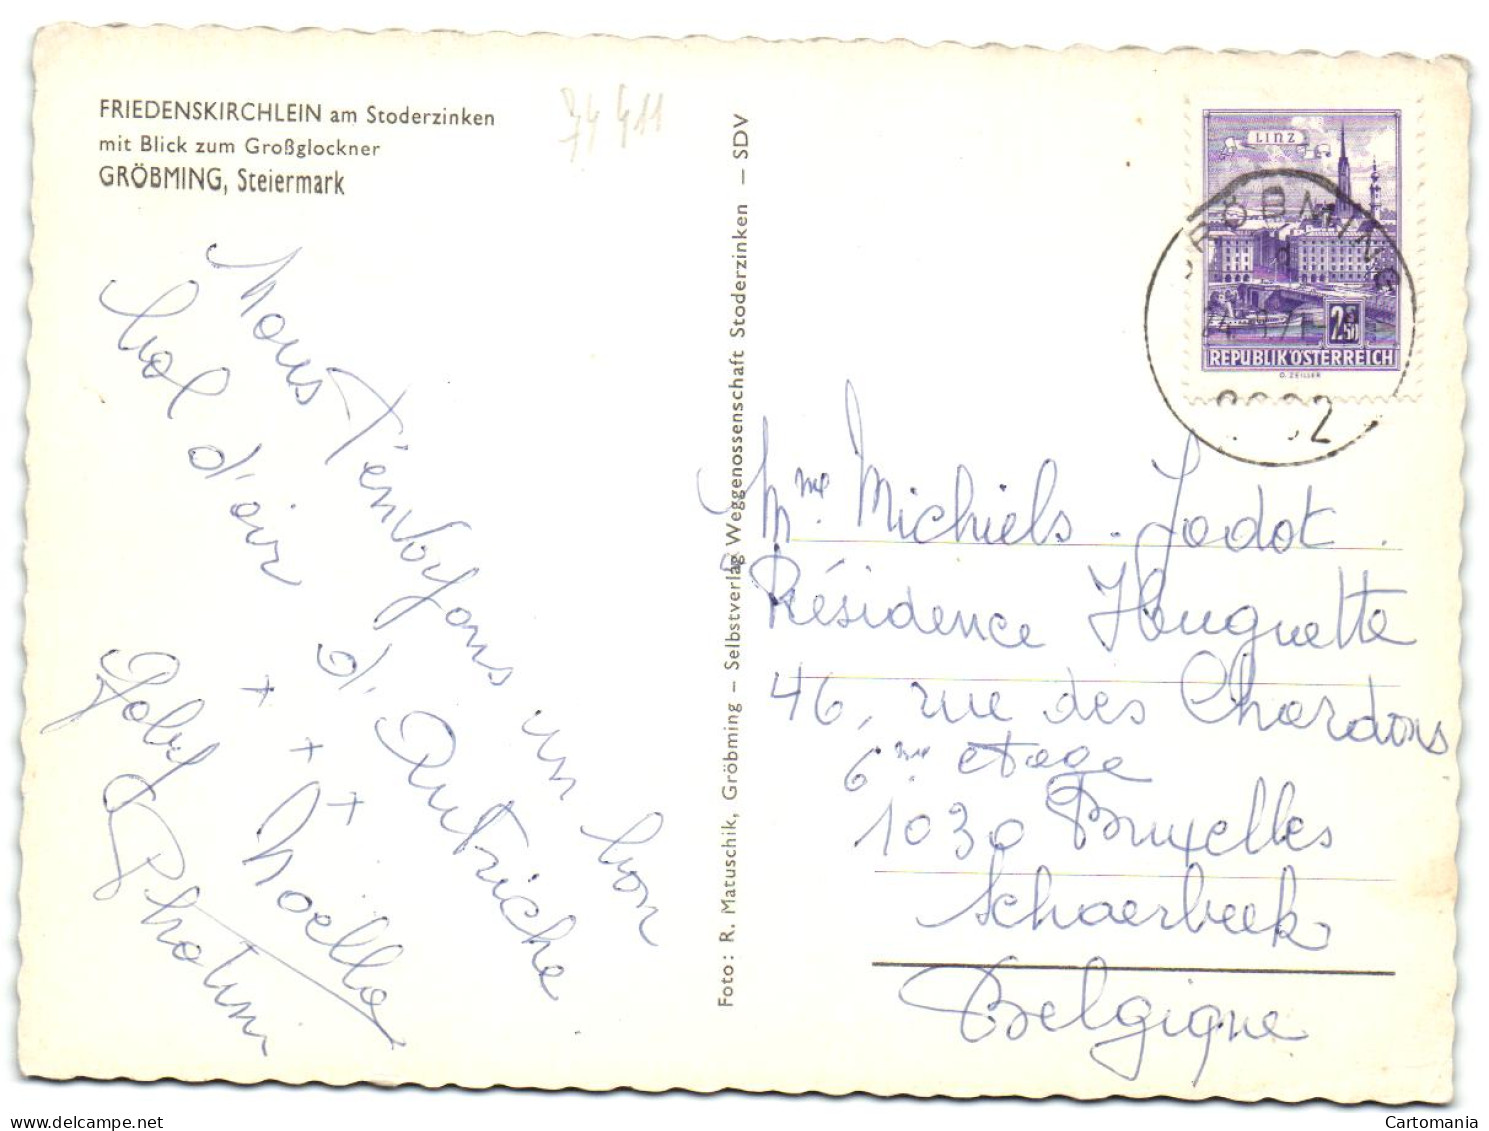 FRIEDENSKIRCHLEIN am Stoderzinken
mit Blick zum Großglockner
GRÖBMING, Steiermark
74 411
Nous t'envoyons un bon
bol d'air d'Autriche
+ + +
Noëlla
Foto: R. Matuschik, Gröbming – Selbstverlag Weggenossenschaft Stoderzinken – SDV
LINZ
2.50
REPUBLIK ÖSTERREICH
O. ZEILLER
GRÖBMING
d
Mme. Michiels - Jodot.
Résidence Huguette
46, rue des Chardons
6me étage
1030 Bruxelles
Schaerbeek
Belgique
Cartomania